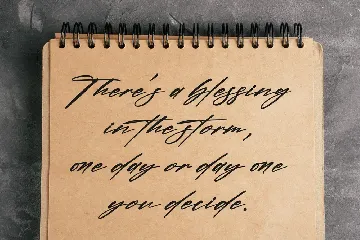 There's a blessing
in the storm,
one day or day one
you decide.